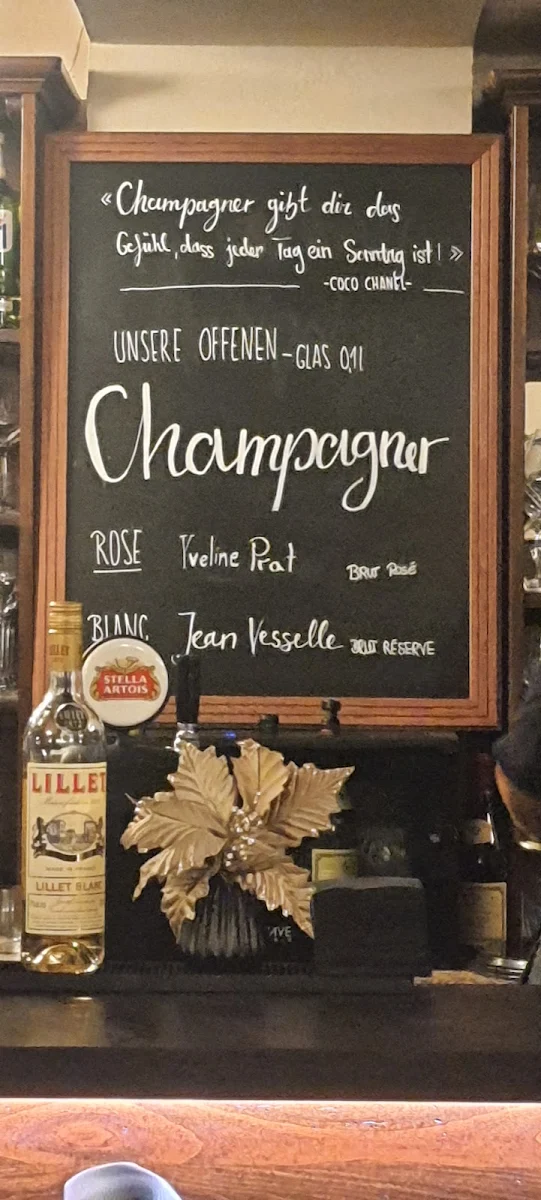 «Champagner gibt dir das
Gefühl, dass jeder Tag ein Sonntag ist! »
-COCO CHANEL-
UNSERE OFFENEN - GLAS 0,1l
Champagner
ROSE Yveline Prat BRUT Rosé
BLANC Jean Vesselle BRUT RÉSERVE
STELLA
ARTOIS
LILLET
MADE IN FRANCE
LILLET BLANC